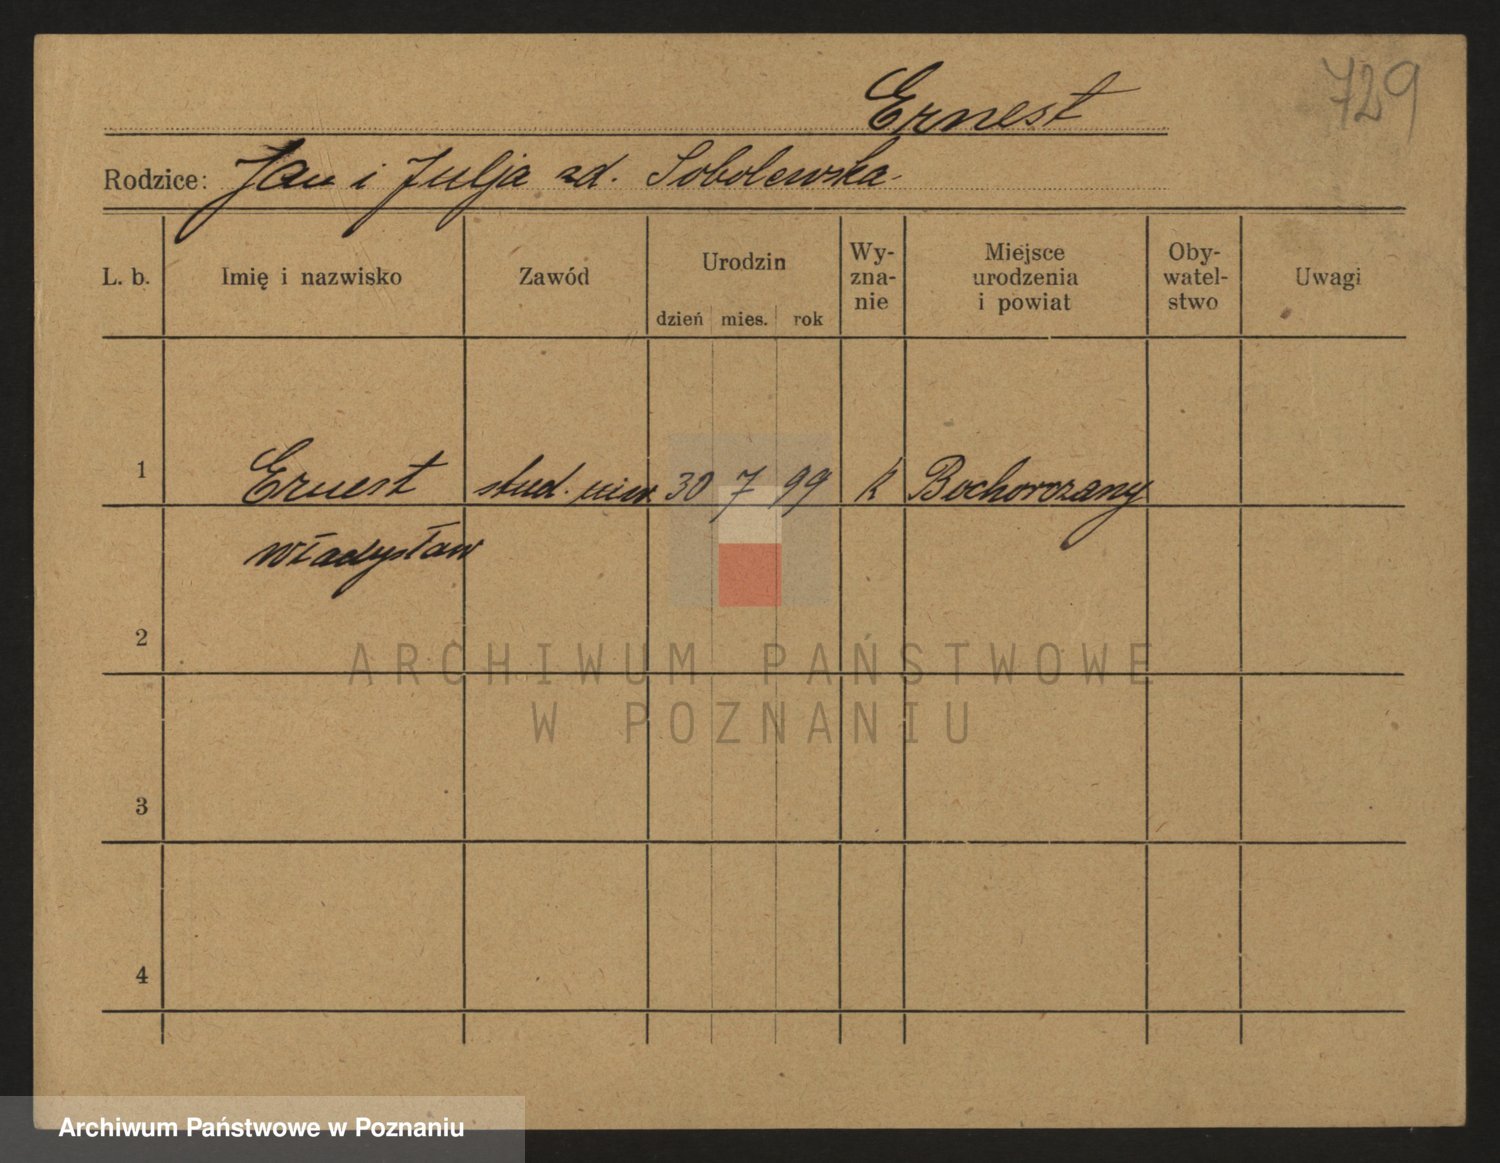 729
Ernest
Rodzice: Jan i Julja zd. Sobolewska
L. b. Imię i nazwisko Zawód Urodzin dzień mies. rok Wy-zna-nie Miejsce urodzenia i powiat Oby-watel-stwo Uwagi
1 Ernest stud. uniw. 30 7 99 k Bochorozany
Władysław
2
ARCHIWUM PAŃSTWOWE
W POZNANIU
3
4
Archiwum Państwowe w Poznaniu